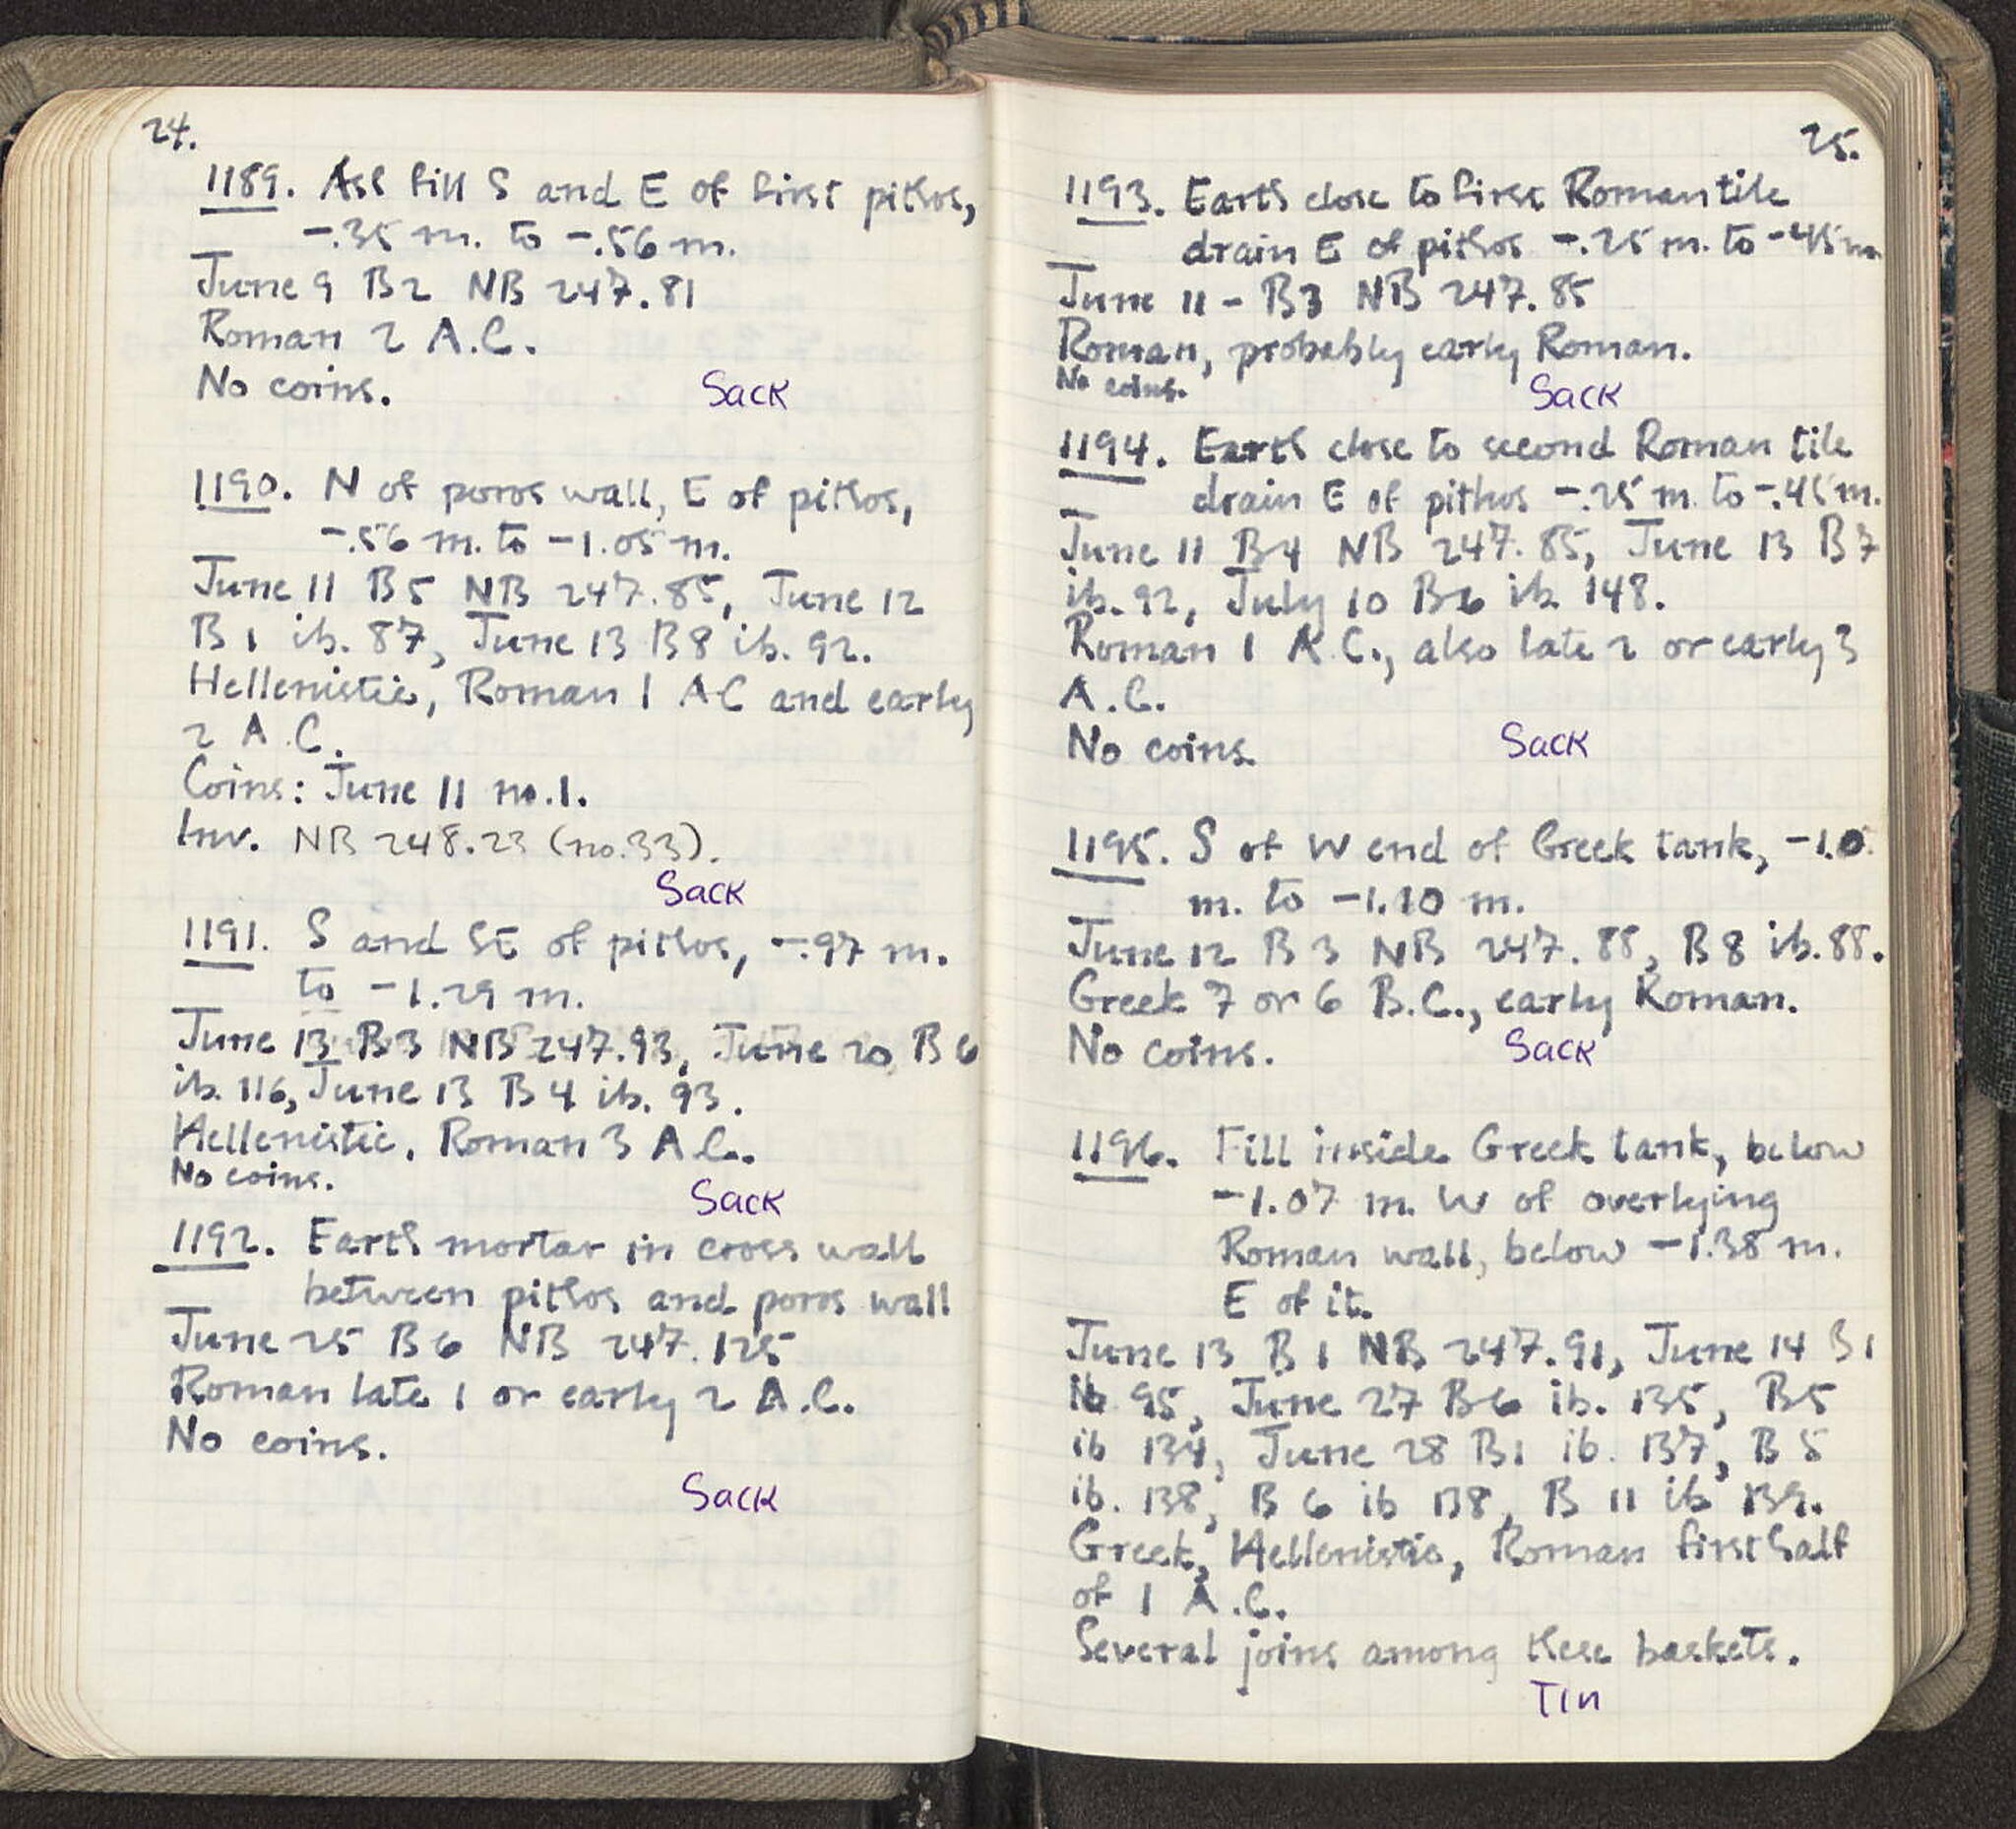 24.
1189. Ash fill S and E of first pithos,
-.35 m. to -.56 m.
June 9 B2 NB 247.81
Roman 2 A.C.
No coins.
Sack
1190. N of poros wall, E of pithos,
-.56 m. to -1.05 m.
June 11 B5 NB 247.85, June 12
B1 ib. 87, June 13 B8 ib. 92.
Hellenistic, Roman 1 AC and early
2 A.C.
Coins: June 11 no.1.
Inv. NB 248.23 (no.33).
Sack
1191. S and SE of pithos, -.97 m.
to -1.29 m.
June 13 B3 NB 247.93, June 20 B6
ib. 116, June 13 B4 ib. 93.
Hellenistic, Roman 3 A.C.
No coins.
Sack
1192. Earth mortar in cross wall
between pithos and poros wall
June 25 B6 NB 247.125
Roman late 1 or early 2 A.C.
No coins.
Sack
25.
1193. Earth close to first Roman tile
drain E of pithos -.25 m. to -.45 m
June 11 - B3 NB 247.85
Roman, probably early Roman.
No coins.
Sack
1194. Earth close to second Roman tile
drain E of pithos -.25 m. to -.45 m.
June 11 B4 NB 247.85, June 13 B7
ib. 92, July 10 B6 ib. 148.
Roman 1 A.C., also late 2 or early 3
A.C.
No coins.
Sack
1195. S of W end of Greek tank, -1.0
m. to -1.10 m.
June 12 B3 NB 247.88, B8 ib. 88.
Greek 7 or 6 B.C., early Roman.
No coins.
Sack
1196. Fill inside Greek tank, below
-1.07 m. W of overlying
Roman wall, below -1.38 m.
E of it.
June 13 B1 NB 247.91, June 14 B1
ib 95, June 27 B6 ib. 135, B5
ib 134, June 28 B1 ib. 137, B5
ib. 138, B6 ib 138, B11 ib 139.
Greek, Hellenistic, Roman first half
of 1 A.C.
Several joins among these baskets.
Tin